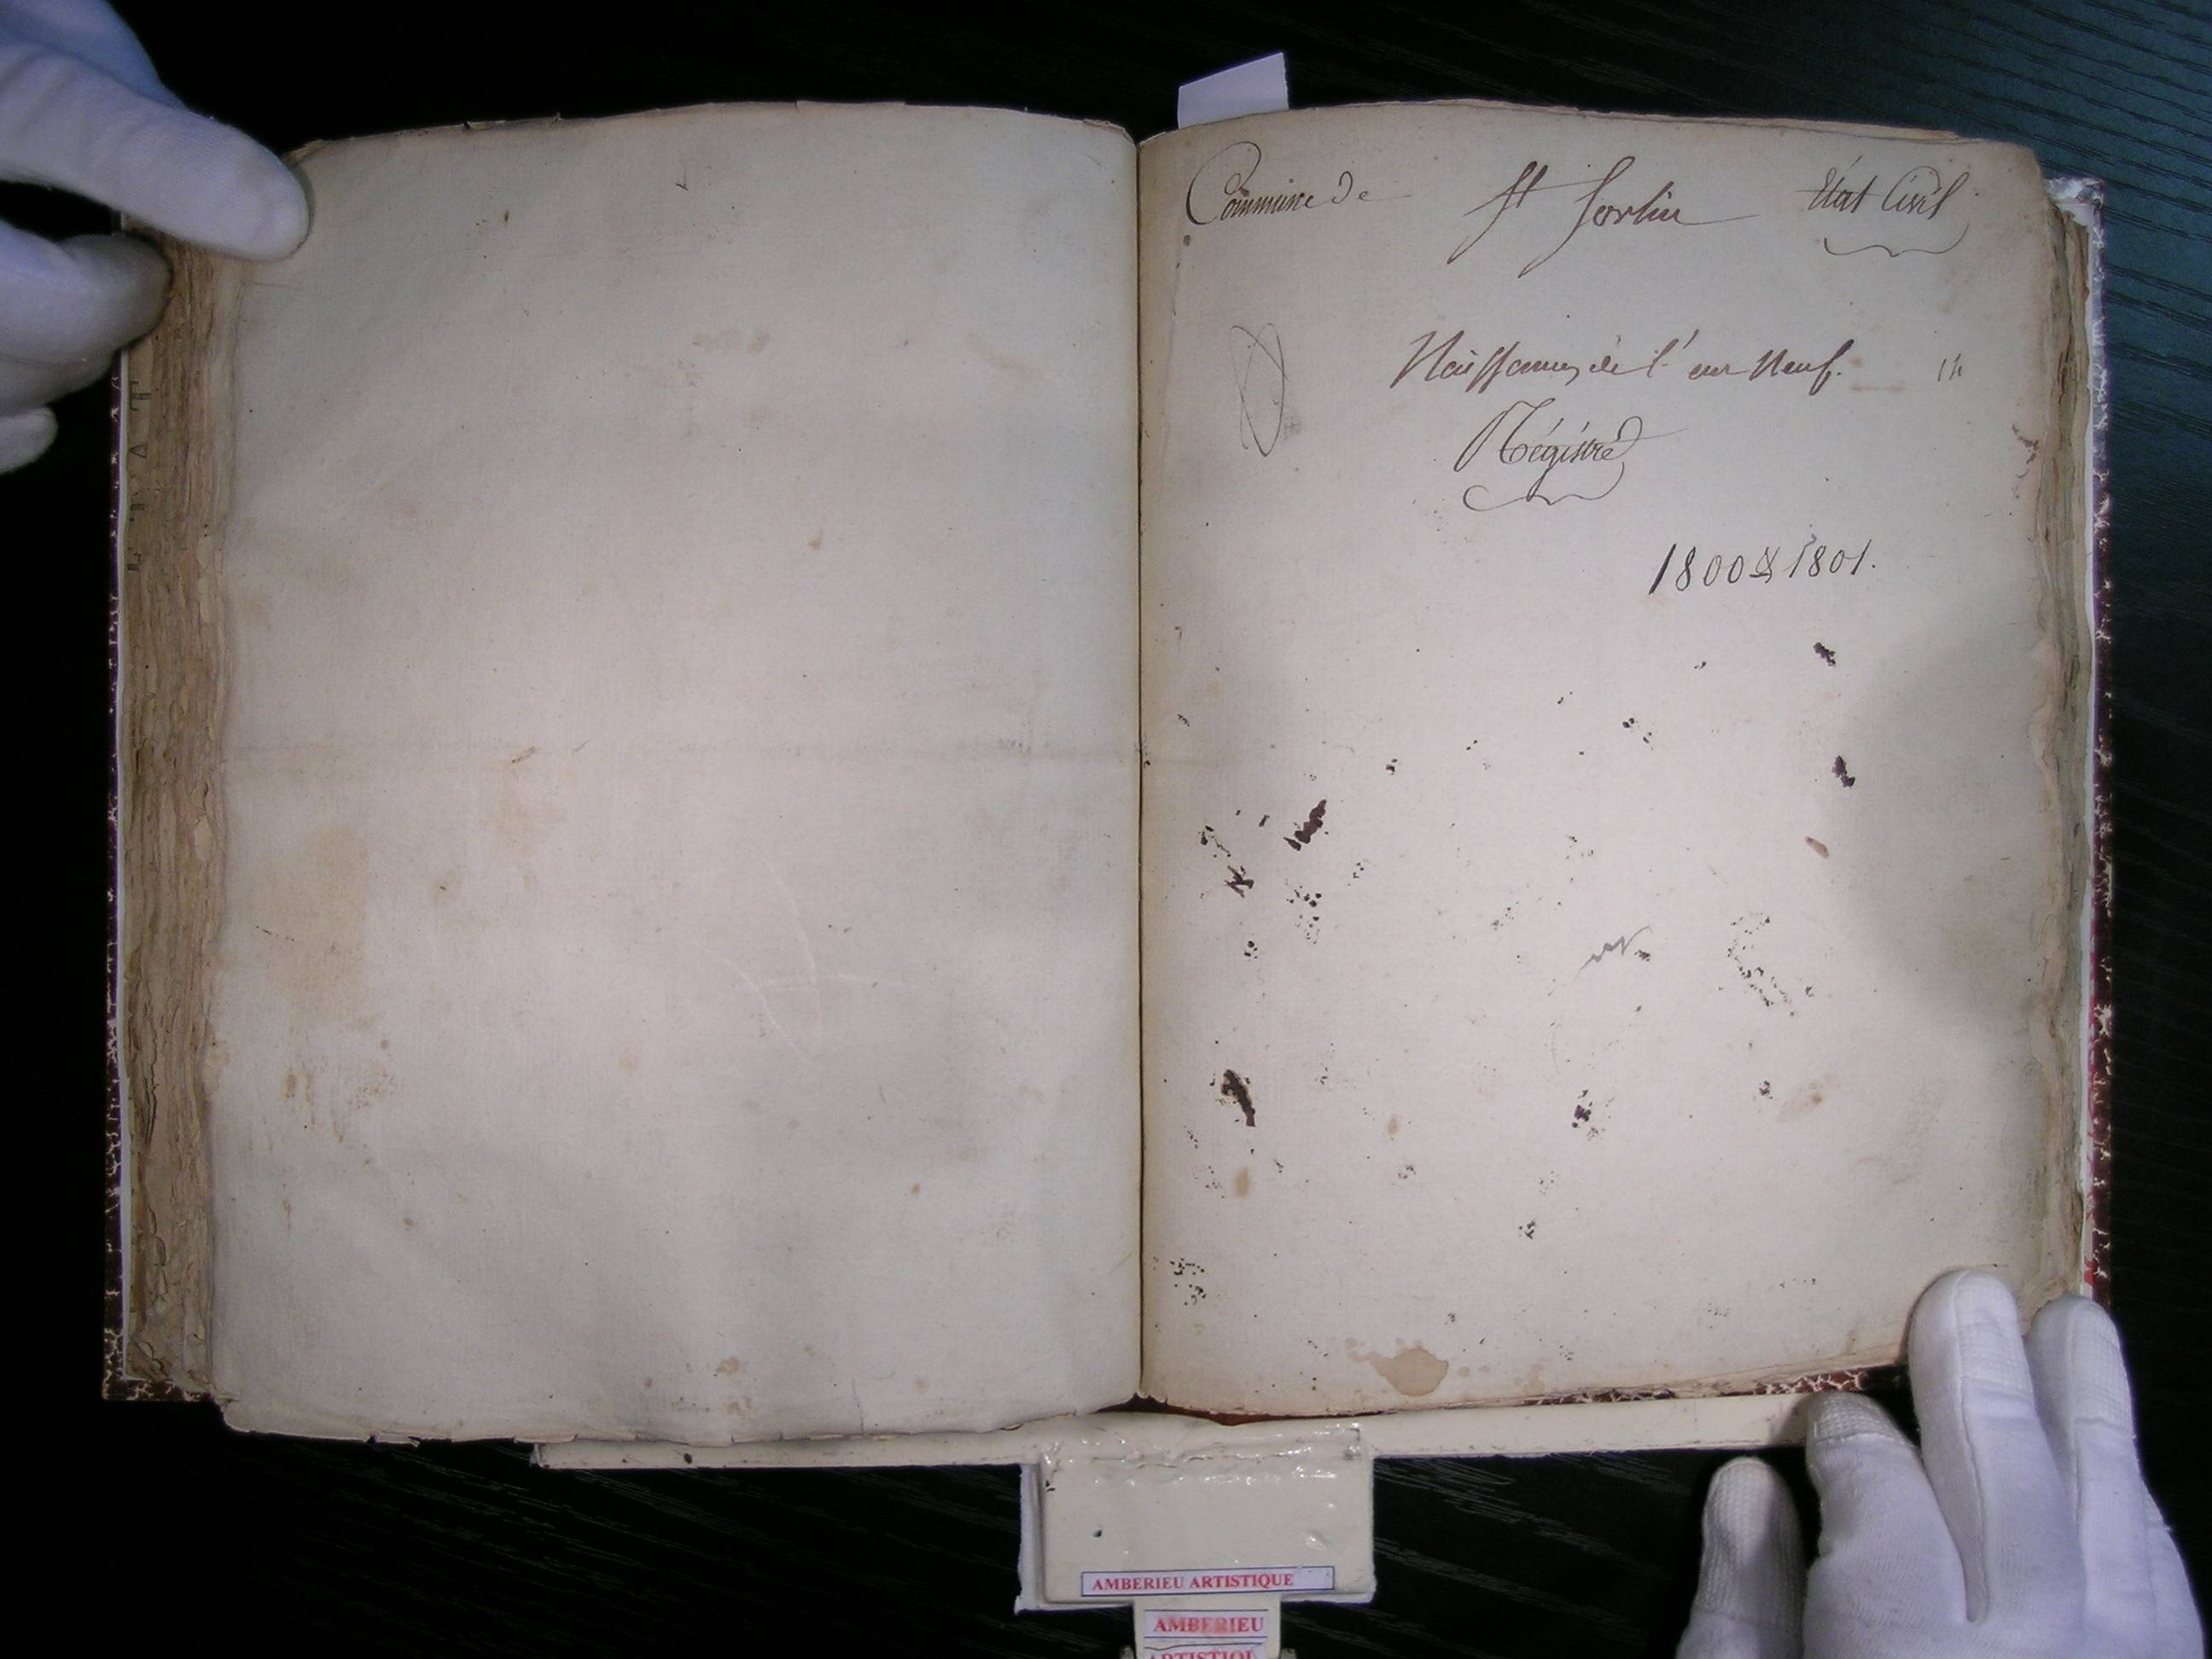 Commune de St Sorlin Etat Civil
Naissances de l'an Neuf. 14
Régistre
1800 & 1801.
AMBERIEU ARTISTIQUE
AMBERIEU